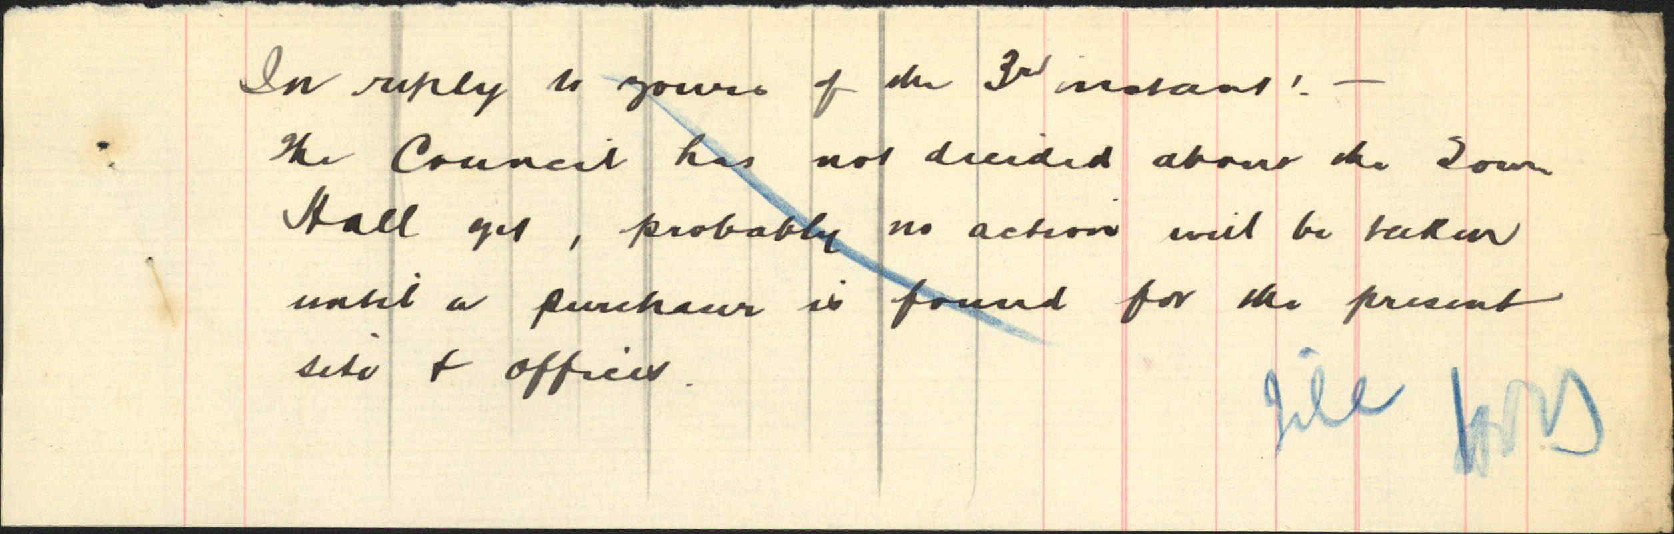 In reply to yours of the 3rd instant! —
The Council has not decided about the Town
Hall yet, probably no action will be taken
until a purchaser is found for the present
site & offices.
File